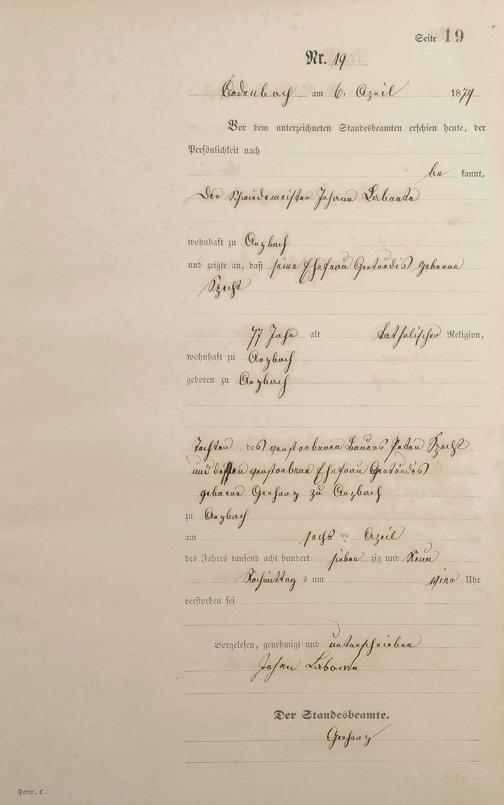 Seite 19
Nr. 19
Kadenbach am 6. April 1879
Vor dem unterzeichneten Standesbeamten erschien heute, der
Persönlichkeit nach
be kannt,
Der Schmiedemeister Johann
wohnhaft zu Arzbach
und zeigte an, daß seine Ehefrau Gertrudis geborne
Specht
77 Jahr alt katholischer Religion,
wohnhaft zu Arzbach
geboren zu Arzbach
Tochter des verstorbenen Bauers Peter Specht
und dessen verstorbene Ehefrau Gertrudis
geborne Gerharz zu Arzbach
zu Arzbach
am sechs ten April
des Jahres tausend acht hundert sieben zig und Neun
Nachmittag s um Uhr
verstorben sei
Vorgelesen, genehmigt und unterschrieben
Johan
Der Standesbeamte.
Gerharz
Form. C.